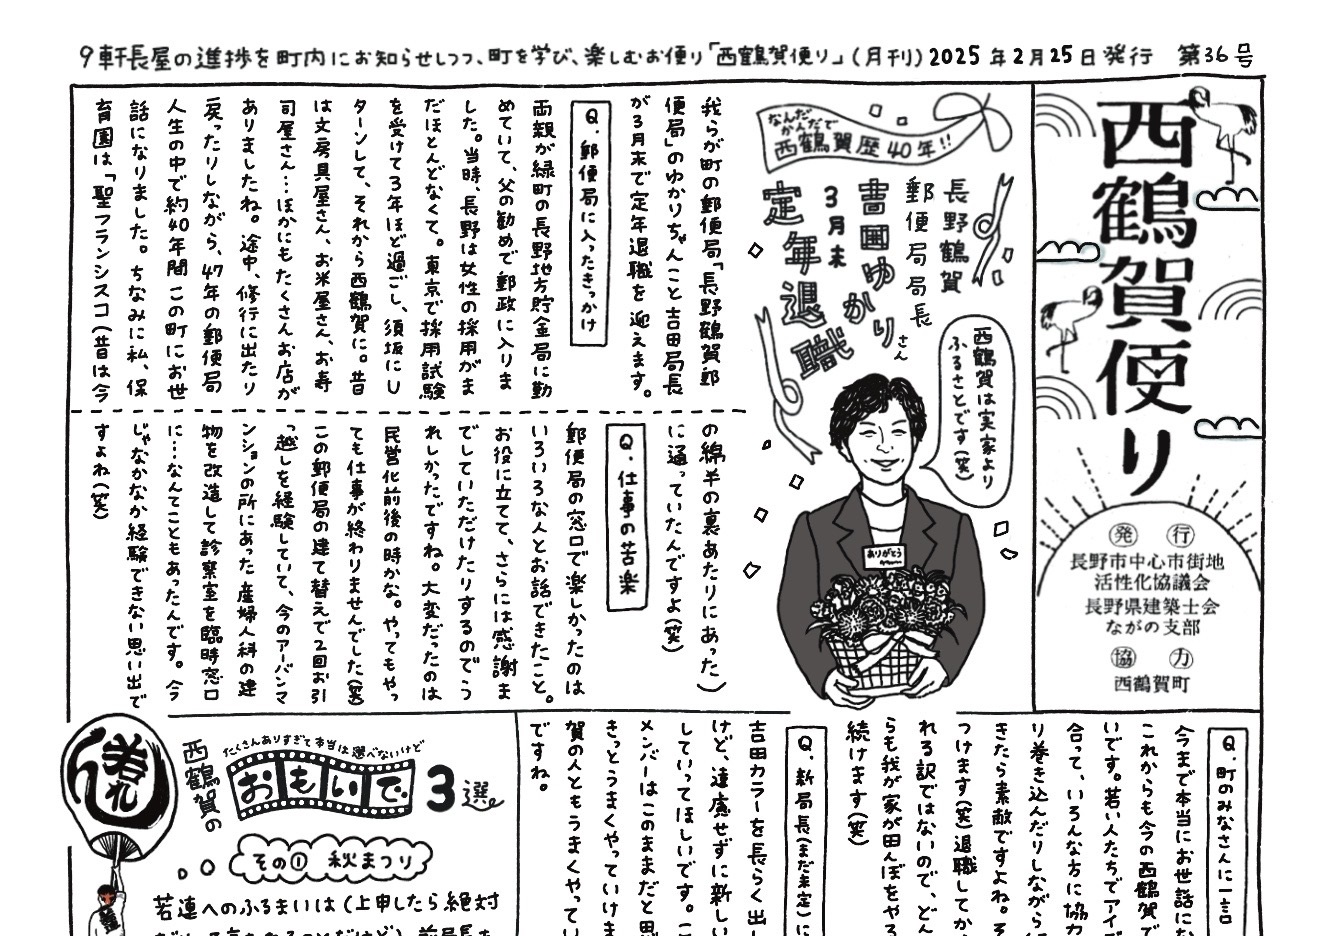 9軒長屋の進捗を町内にお知らせしつつ、町を学び、楽しむお便り「西鶴賀便り」(月刊) 2025年2月25日発行 第36号
西鶴賀便り
発行
長野市中心市街地
活性化協議会
長野県建築士会
ながの支部
協力
西鶴賀町
なんだかんだで
西鶴賀歴40年!!
長野鶴賀
郵便局局長
吉田ゆかりさん
3月末
定年退職
西鶴賀は実家より
ふるさとです(笑)
ありがとう
我らが町の郵便局「長野鶴賀郵
便局」のゆかりちゃんこと吉田局長
が3月末で定年退職を迎えます。
Q.郵便局に入ったきっかけ
両親が緑町の長野地方貯金局に勤
めていて、父の勧めで郵政に入りま
した。当時、長野は女性の採用がま
だほとんどなくて。東京で採用試験
を受けて3年ほど過ごし、須坂にU
ターンして、それから西鶴賀に。昔
は文房具屋さん、お米屋さん、お寿
司屋さん…ほかにもたくさんお店が
ありましたね。途中、修行に出たり
戻ったりしながら、47年の郵便局
人生の中で約40年間この町にお世
話になりました。ちなみに私、保
育園は「聖フランシスコ(昔は今
の綿半の裏あたりにあった)
に通っていたんですよ(笑)
Q.仕事の苦楽
郵便局の窓口で楽しかったのは
いろいろな人とお話できたこと。
お役に立てて、さらには感謝ま
でしていただけたりするのでう
れしかったですね。大変だったのは
民営化前後の時かな。やってもやっ
ても仕事が終わりませんでした(笑)
この郵便局の建て替えで2回お引
っ越しを経験していて、今のアーバンマ
ンションの所にあった産婦人科の建
物を改造して診察室を臨時窓口
に…なんてこともあったんです。今
じゃなかなか経験できない思い出で
すよね(笑)
Q.町のみなさんに一言
今まで本当にお世話にな
これからも今の西鶴賀で
いです。若い人たちでアイデ
合って、いろんな方に協力
り巻き込んだりしながら
きたら素敵ですよね。そ
つけます(笑)退職してか
れる訳ではないので、どん
らも我が家が田んぼをやる
続けます(笑)
Q.新局長(まだ未定)に
吉田カラーを長らく出し
けど、遠慮せずに新しい
していってほしいです。こ
メンバーはこのままだと思
きっとうまくやっていけま
賀の人ともうまくやってい
ですね。
若れん
西鶴賀の
たくさんありすぎて本当は選べないけど
おもいで3選
その① 秋まつり
若連へのふるまいは(上申したら絶対